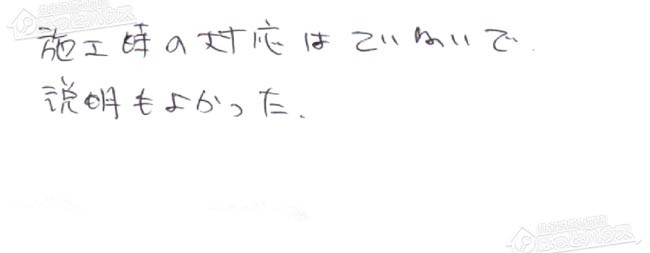 施工時の対応はていねいで
説明もよかった.